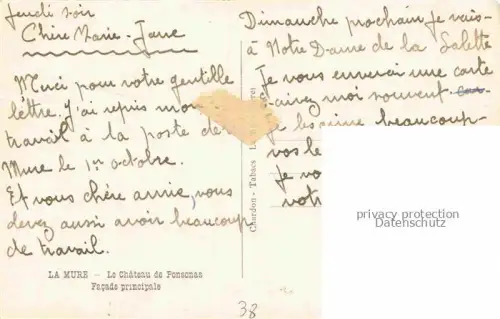 Jeudi soir
Chère Marie-Jane
Merci pour votre gentille
lettre. J'ai repris mon
travail à la poste de
Mure le 1er octobre.
Et vous chère amie, vous
devez aussi avoir beaucoup
de travail.
LA MURE - Le Château de Ponsonas
Façade principale
38
Chardon - Tabacs
Dimanche prochain je vais
à Notre Dame de la Salette
Je vous enverai une carte
moi souvent
beaucoup
vos le
Je vo
votr
privacy protection
Datenschutz